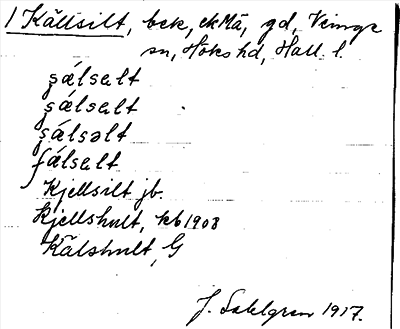 1 Källsilt, bek, ekMä, gd, Veinge
sn, Höks hd, Hall. l.
şálsəlt
şálsəlt
şálsəlt
ʃálsəlt
Kjellsilt jb.
Kjellshult, kb 1908
Källshult, G
J. Sahlgren 1917.